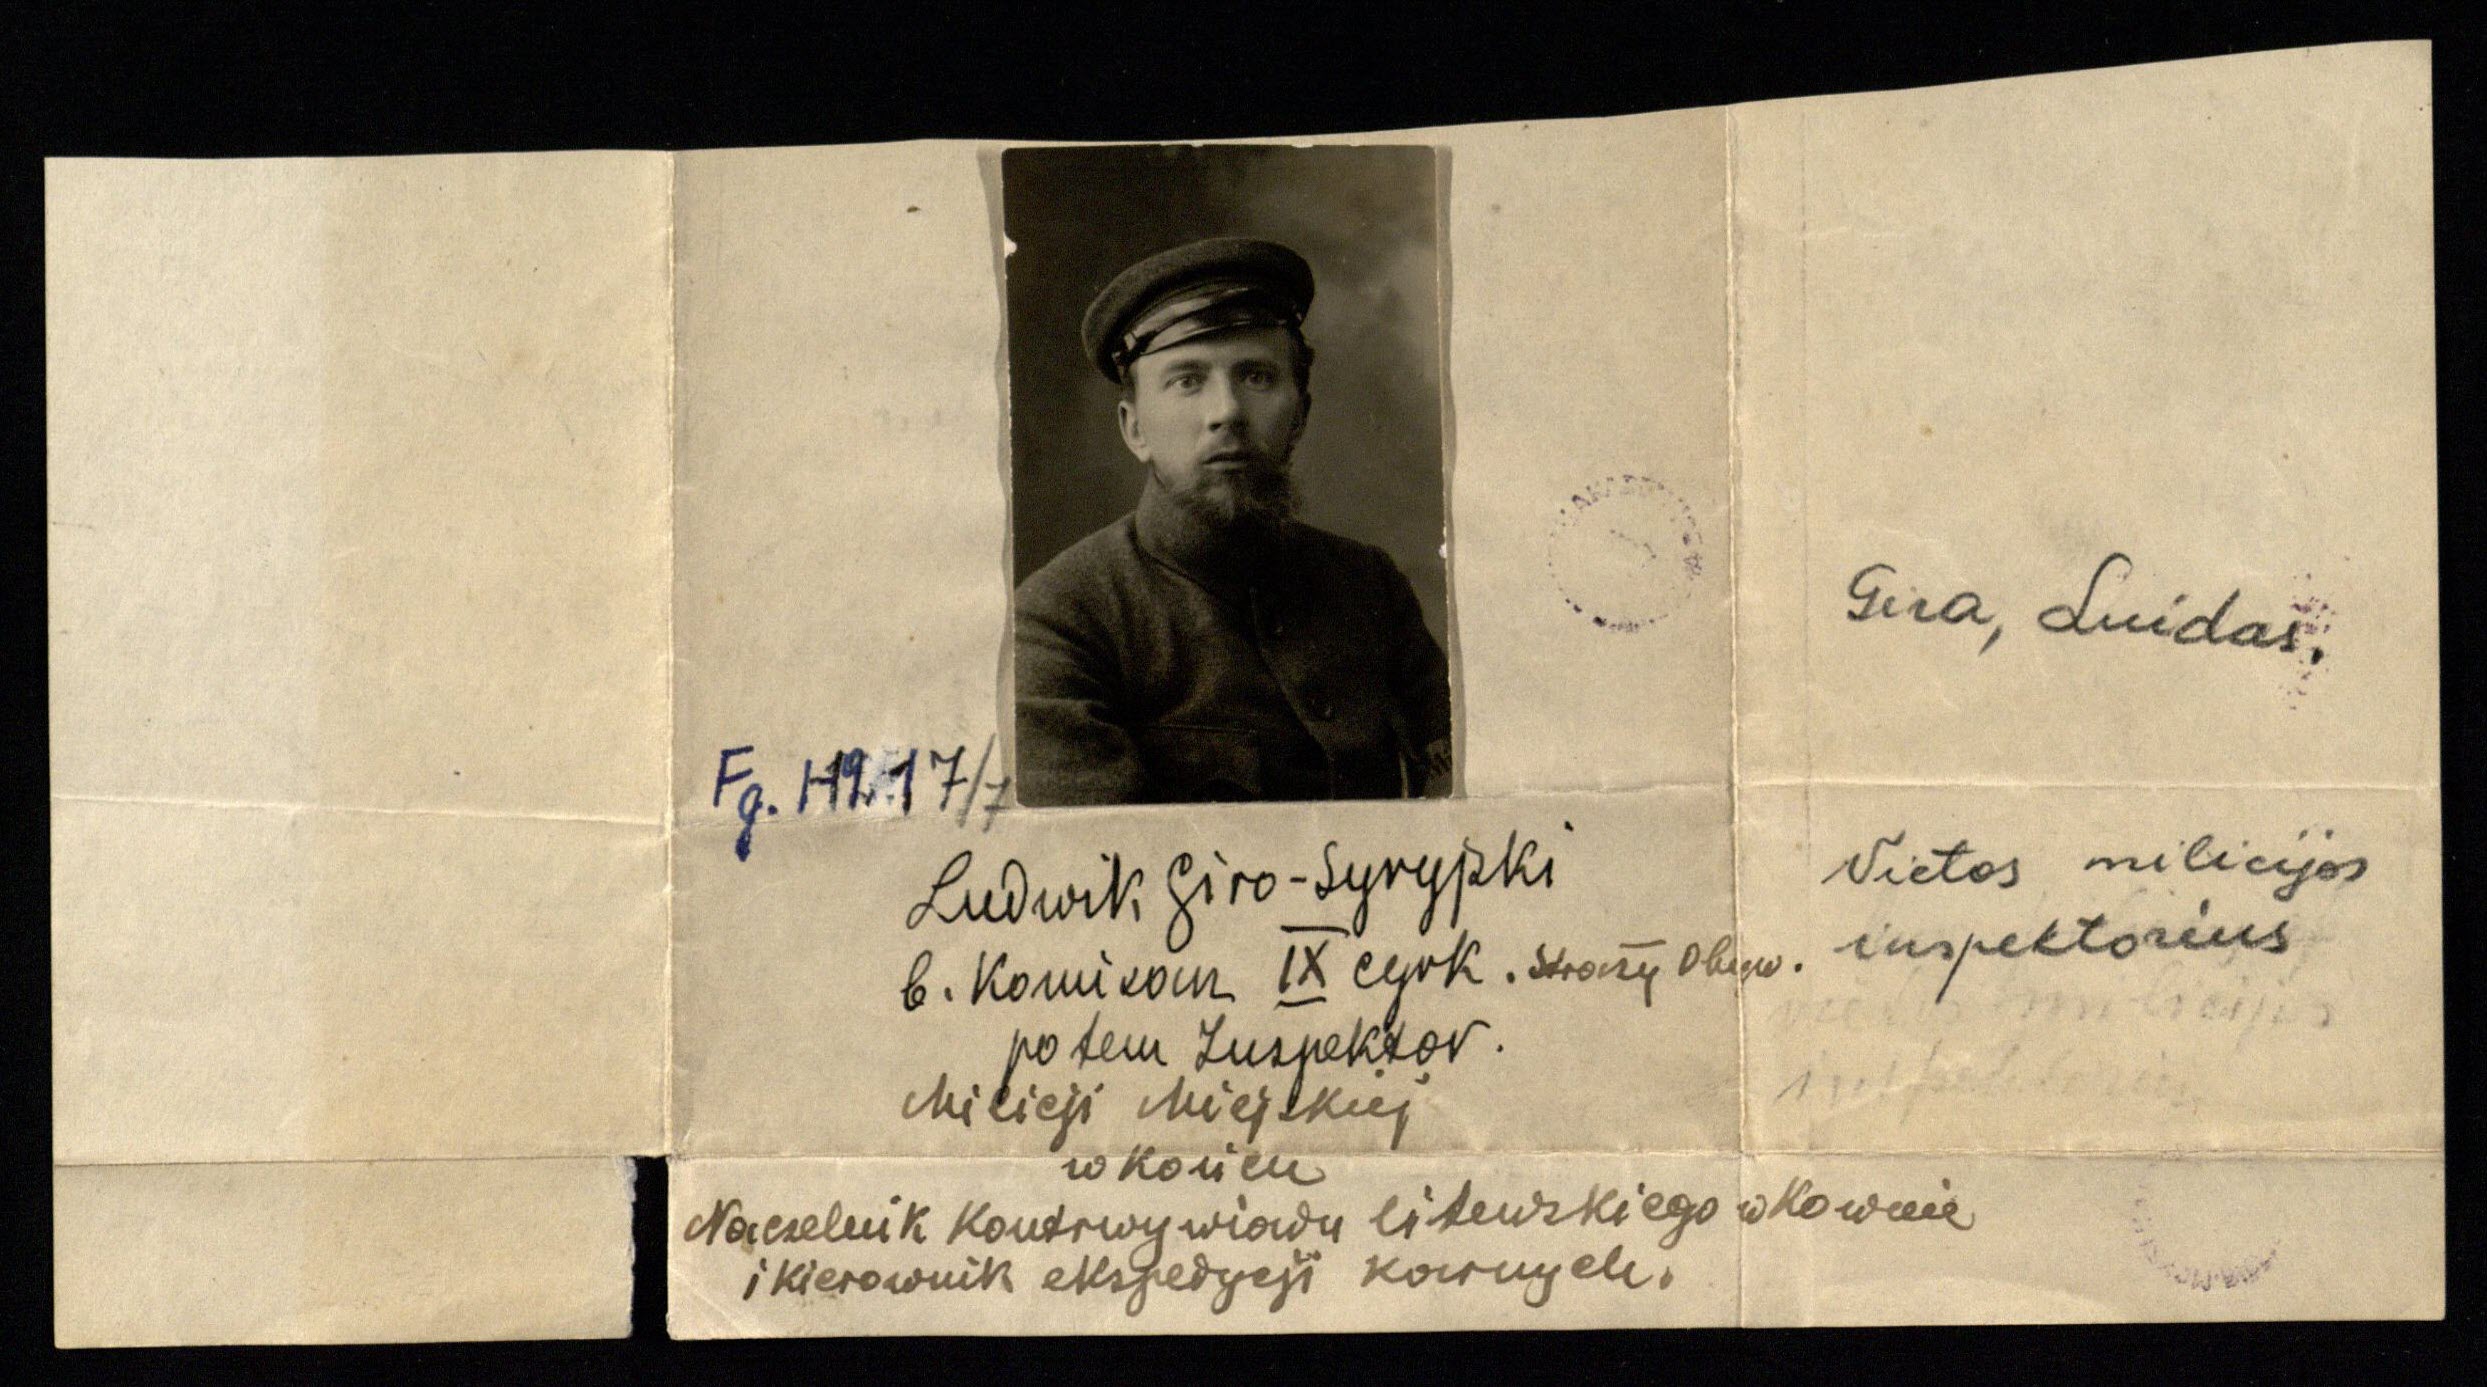 Fg. H1.17/7
Ludwik Giro-Syrypski
b. Komisarz IX cyrk. Straży Obyw.
potem Inspektor.
Milicji Miejskiej
w końcu
Naczelnik Kontrwywiadu litewskiego w Kownie
i kierownik ekspedycji karnych.
Gira, Liudas.
Vietos milicijos
inspektorius
vietos milicijos